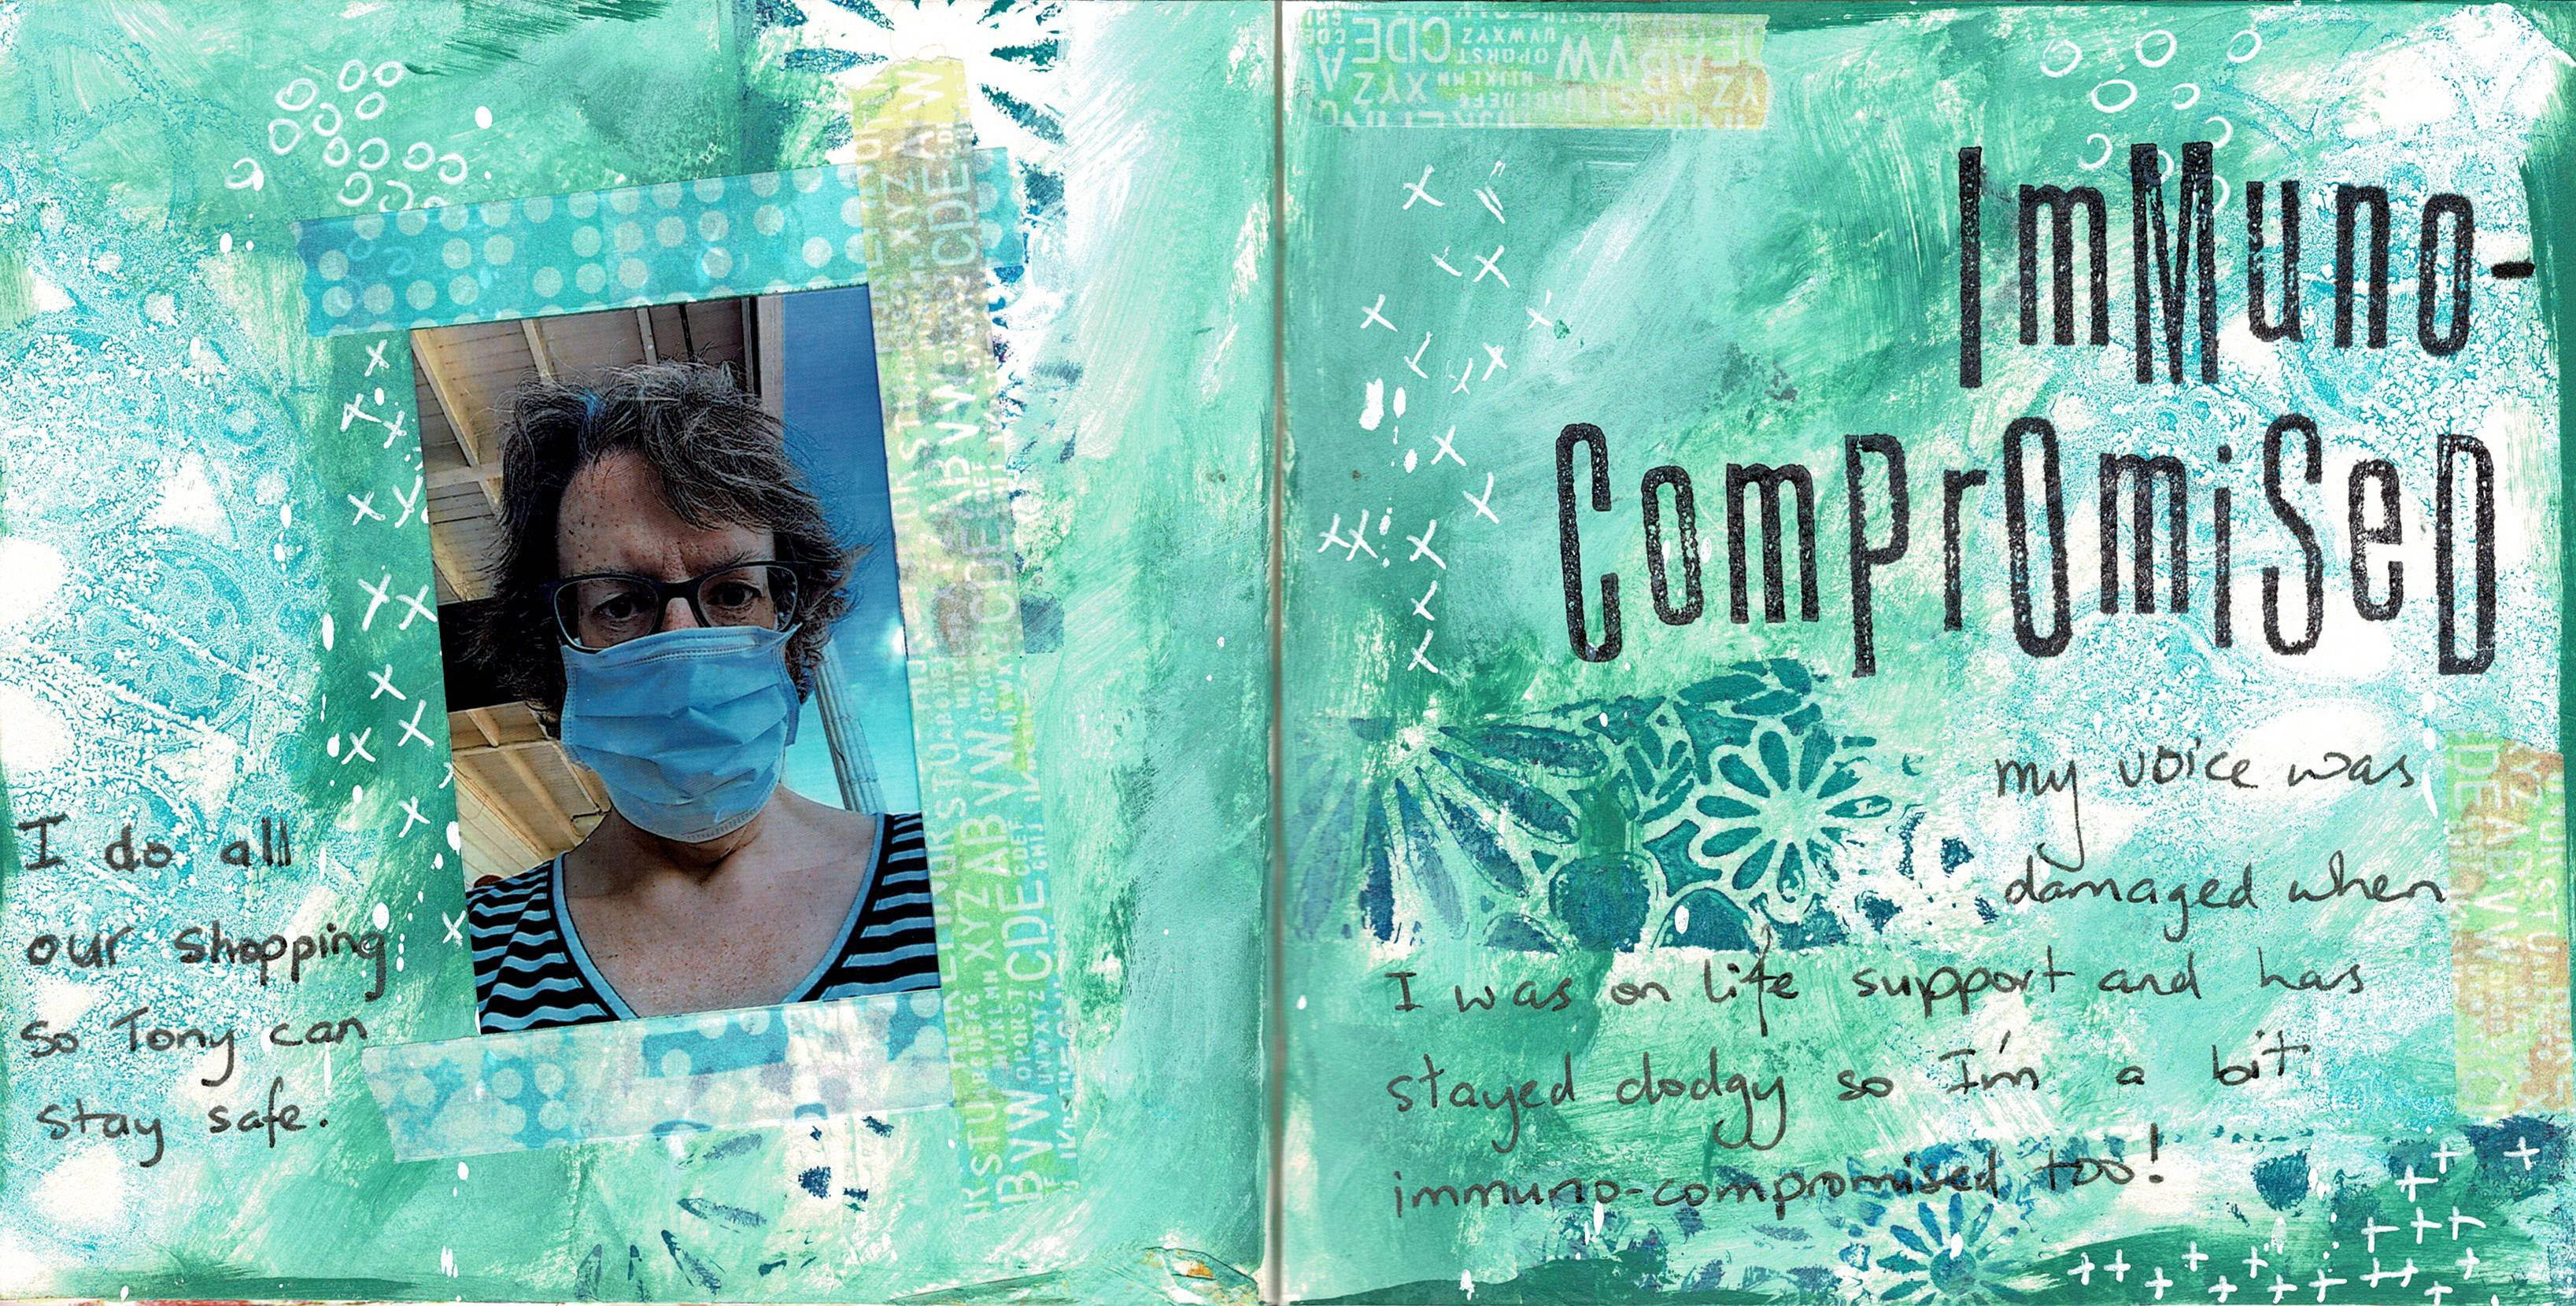 I do all
our shopping
so Tony can
stay safe.
ImMuno-
ComPrOmiSeD
my voice was
damaged when
I was on life support and has
stayed dodgy so I'm a bit
immuno-compromised too!